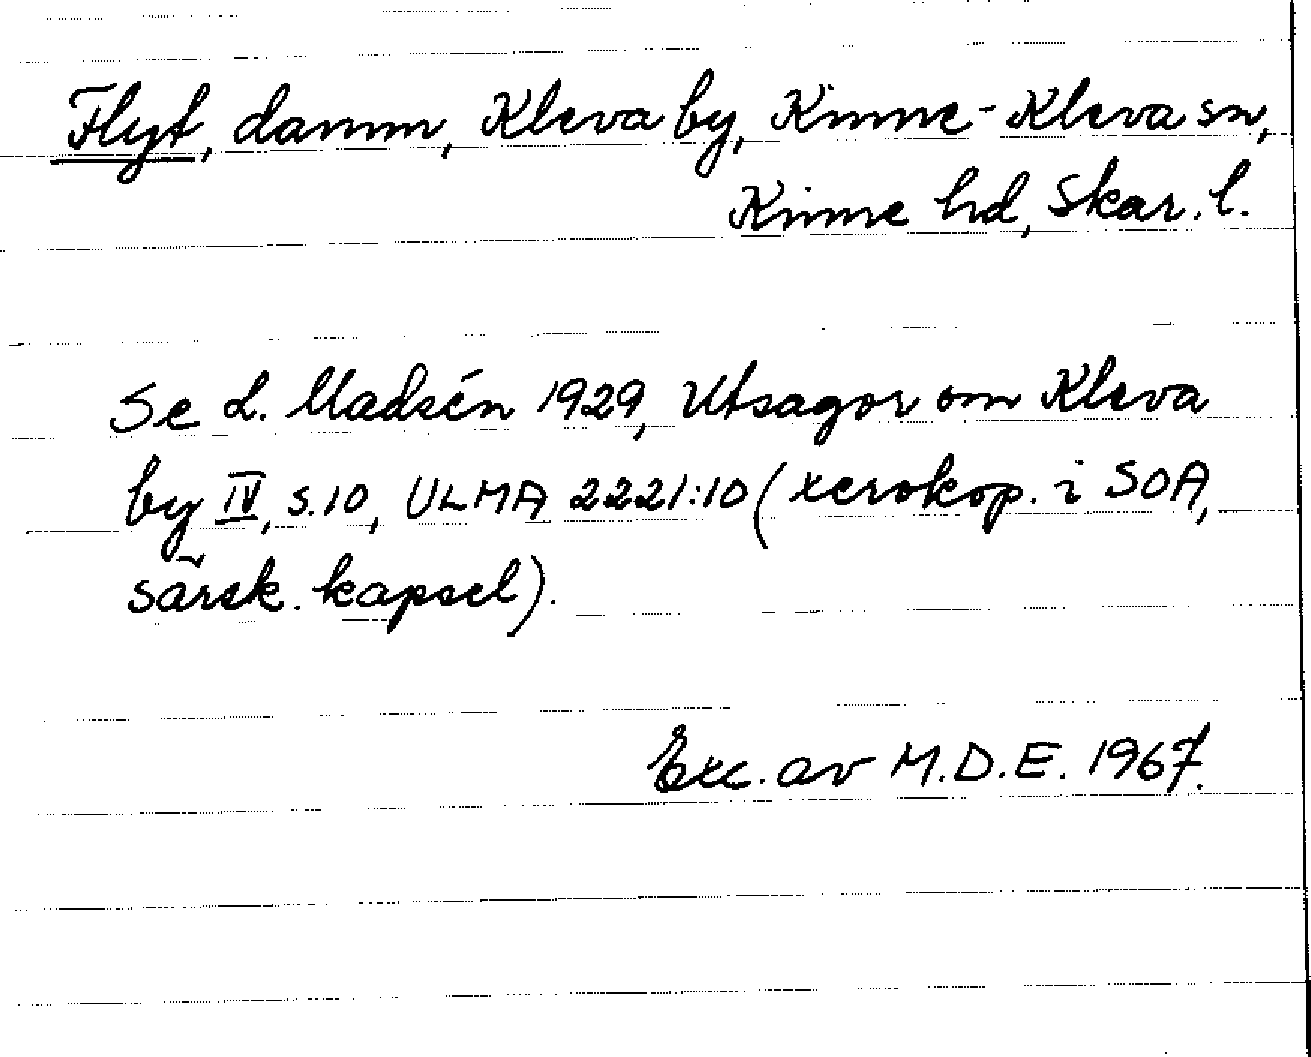 Flyt, damm, Kleva by, Kinne-Kleva sn,
Kinne hd, Skar. l.
Se L. Madsén 1929, Utsagor om Kleva
by IV, s. 10, ULMA 2221:10 (xerokop. i SOA,
särsk. kapsel).
Exc. av M.D.E. 1967.